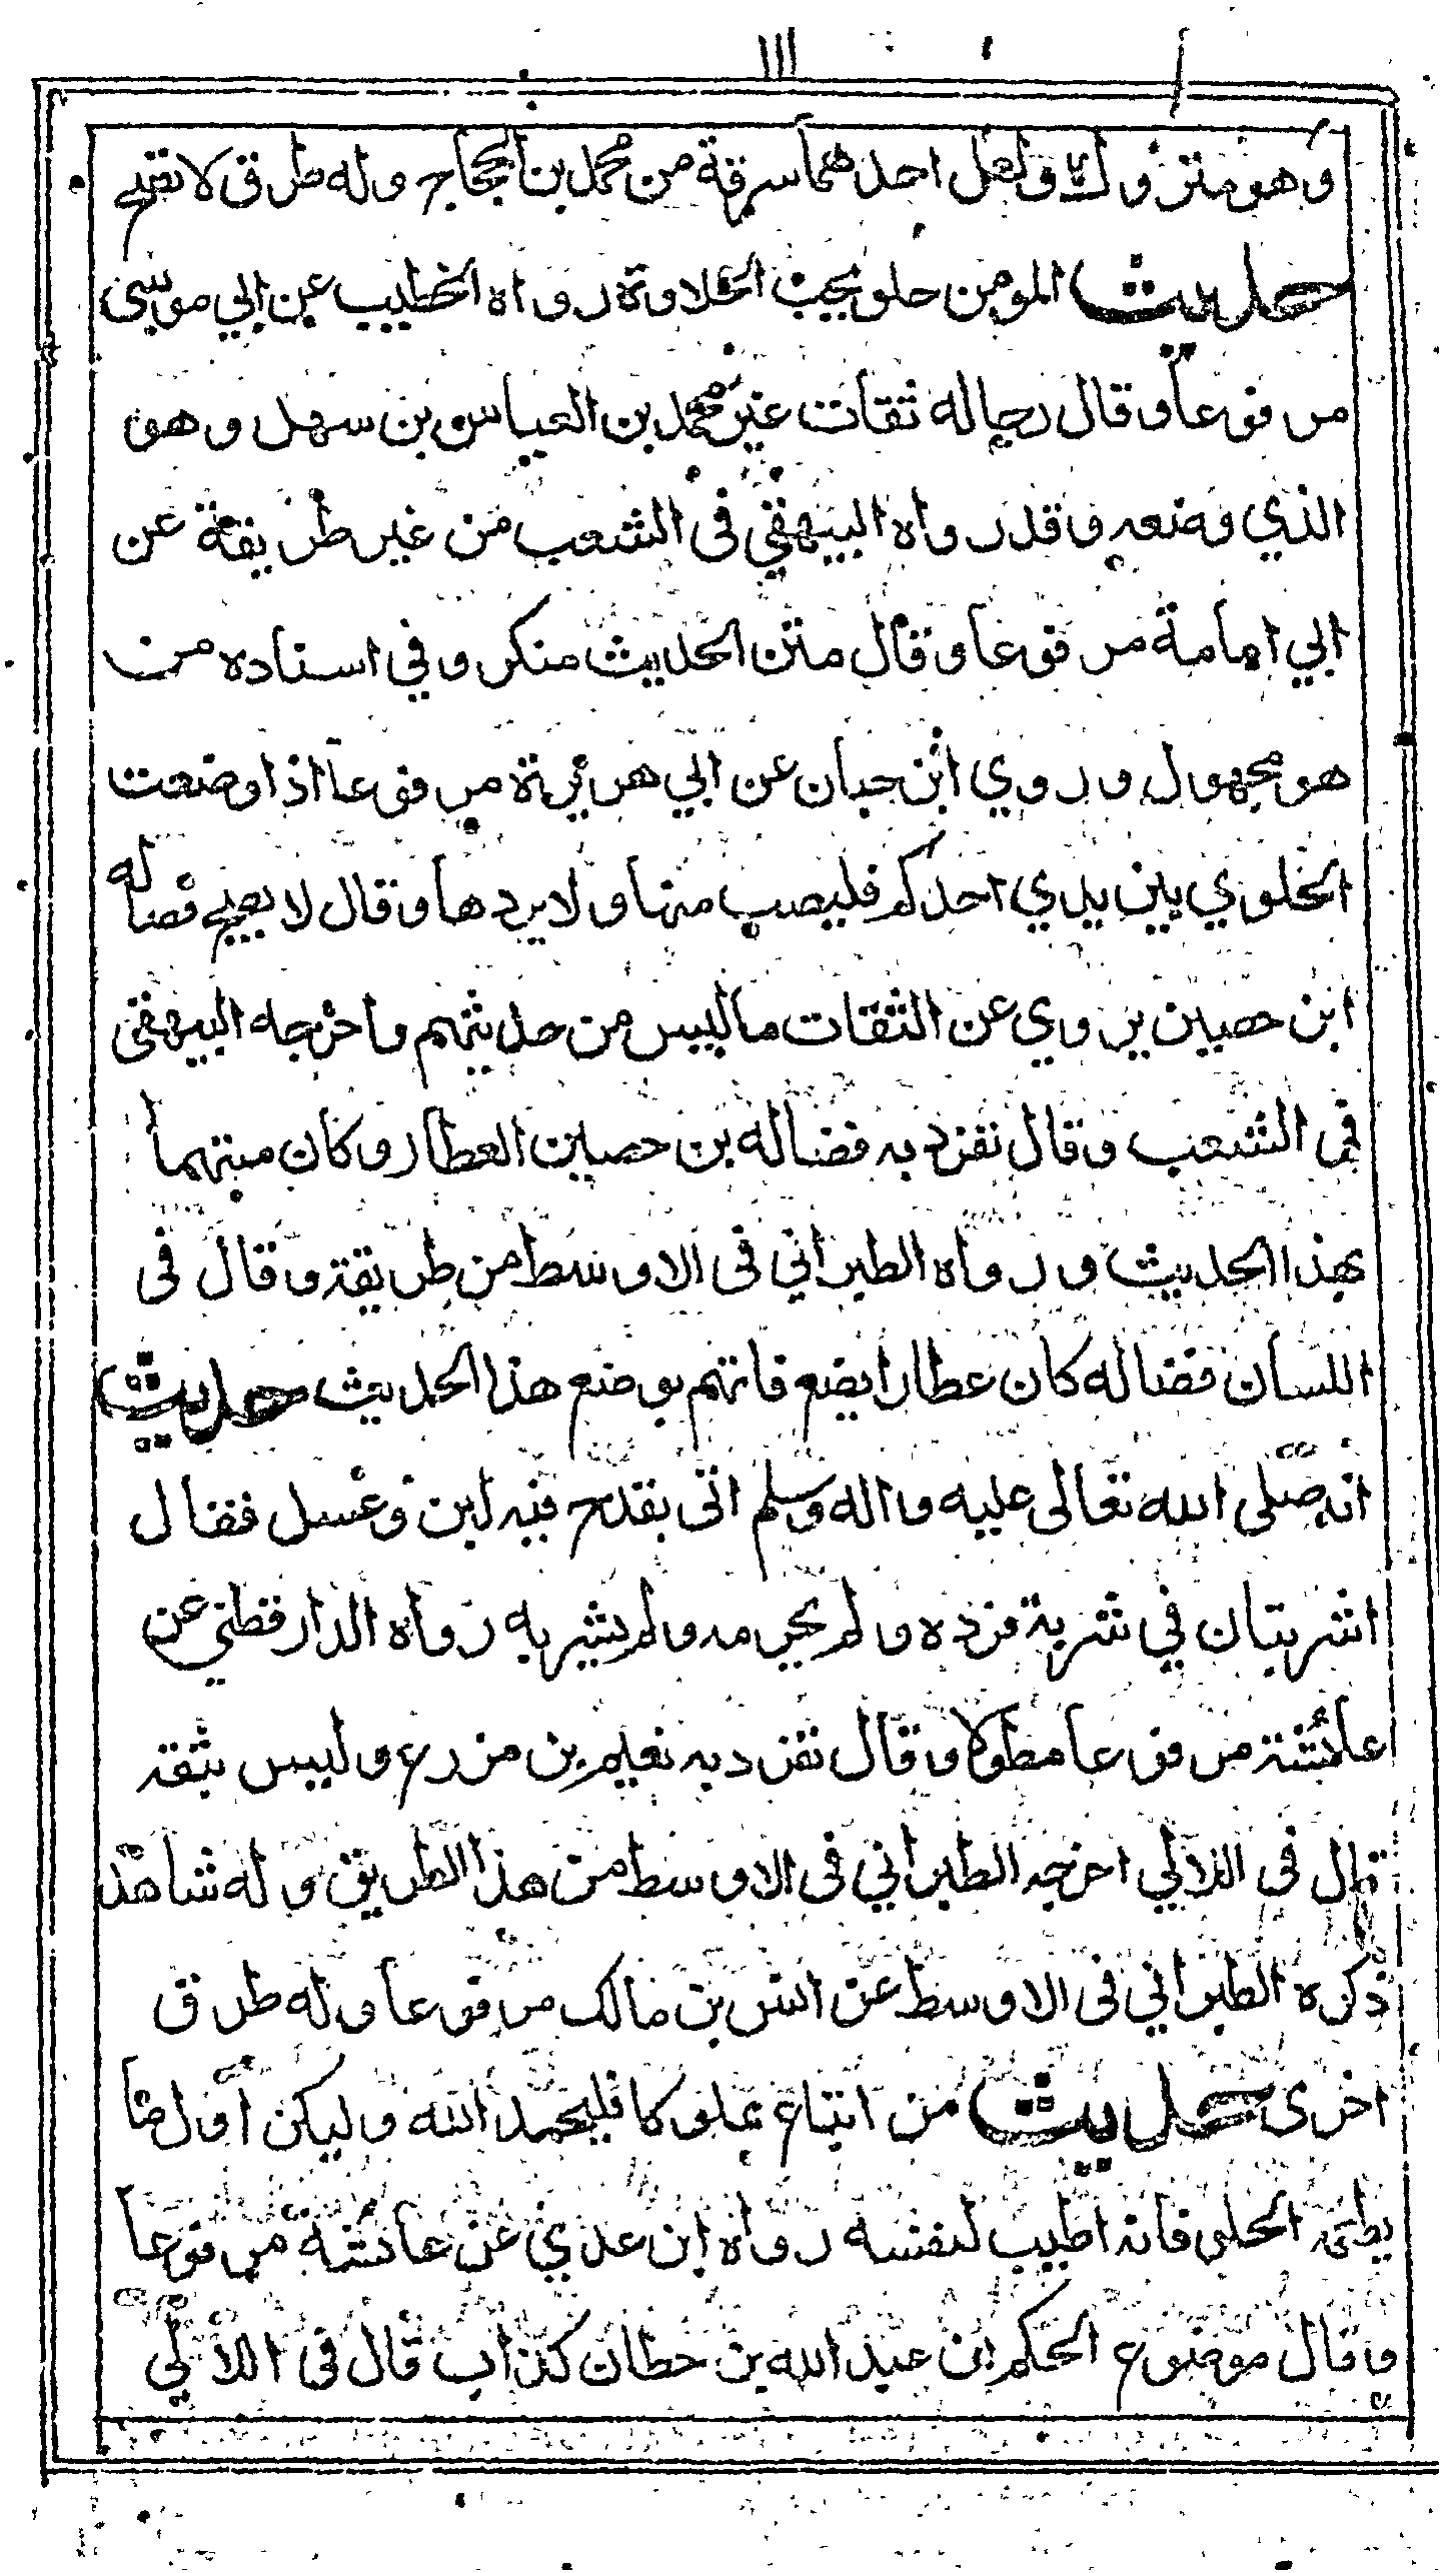 ١١١
وهو متروك ولعل احدهما سرقة من محمد بن الحجاج وله طرق لا تصح
حديث المومن حلو يحب الحلاوة رواه الخطيب عن ابي موسى
مرفوعا وقال رجاله ثقات غير محمد بن العباس بن سهل وهو
الذي وضعه وقد رواه البيهقي فى الشعب من غير طريقة عن
ابي امامة مرفوعا وقال متن الحديث منكر وفي اسناده من
هو مجهول وروي ابن حبان عن ابي هريرة مرفوعا اذا وضعت
الحلوي بين يدي احدكم فليصب منها ولا يردها وقال لا يصح فضاله
ابن حصين يروي عن الثقات ما ليس من حديثهم واخرجه البيهقى
فى الشعب وقال تفرد به فضاله بن حصين العطار وكان متهما
بهذا الحديث ورواه الطبراني فى الاوسط من طريقة وقال فى
اللسان فضاله كان عطارا يضع فاتهم بوضع هذا الحديث حديث
انه صلى الله تعالى عليه واله وسلم اتى بقدح فيه لبن وعسل فقال
اشربتان في شربة فرده ولم يحرمه ولم يشربه رواه الدارقطني عن
عائشة مرفوعا مطولا وقال تفرد به نعيم بن مزرع وليس بثقه
قال فى اللالي اخرجه الطبراني فى الاوسط من هذا الطريق وله شاهد
ذكره الطبراني فى الاوسط عن انس بن مالك مرفوعا وله طرق
اخرى حديث من ابتاع مملوكا فليحمد الله وليكن اول ما
يطعمه الحلوى فانه اطيب لنفسه رواه ابن عدي عن عائشه مرفوعا
وقال موضوع الحكم ابن عبد الله بن حطان كذاب قال فى اللالي